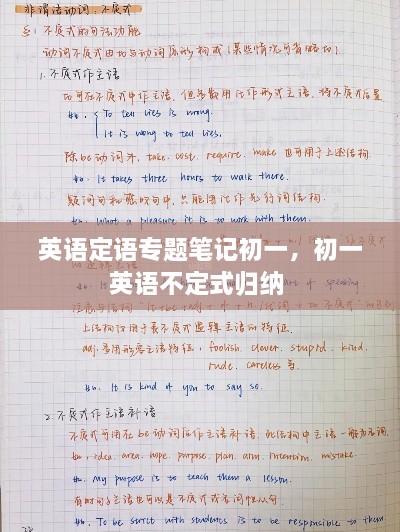 非谓语动词:不定式
不定式的句法功能
动词不定式由to与动词原形构成(某些情况可省略to)
1.不定式作主语
to可在不定式中作主语,但多数用it作形式主语,将不定式后置
To tell lies is wrong.
It is wrong to tell lies.
除be动词外,take, cost, require, make 也可用于上述结构.
It takes three hours to walk there.
疑问句和感叹句中,只能用it作先行词结构.
What a pleasure it is to work with them.
英语定语专题笔记初一,初一
英语不定式归纳
of speaking.
上结构仅用于表不定式逻辑主语的特征.
adj.多用形容主语特征,foolish, clever, stupid, kind,
rude, careless等.
It is kind of you to say so.
2.不定式作主语补语
不定式可用在be动词后作主语补语,此结构中主语一般为名词.
idea, area, hope, purpose, plan, aim, intention, mistake.
My purpose is to teach them a lesson.
有时句子主语也可以是不定式或名词性从句
To be strict with students is to be responsible to them.